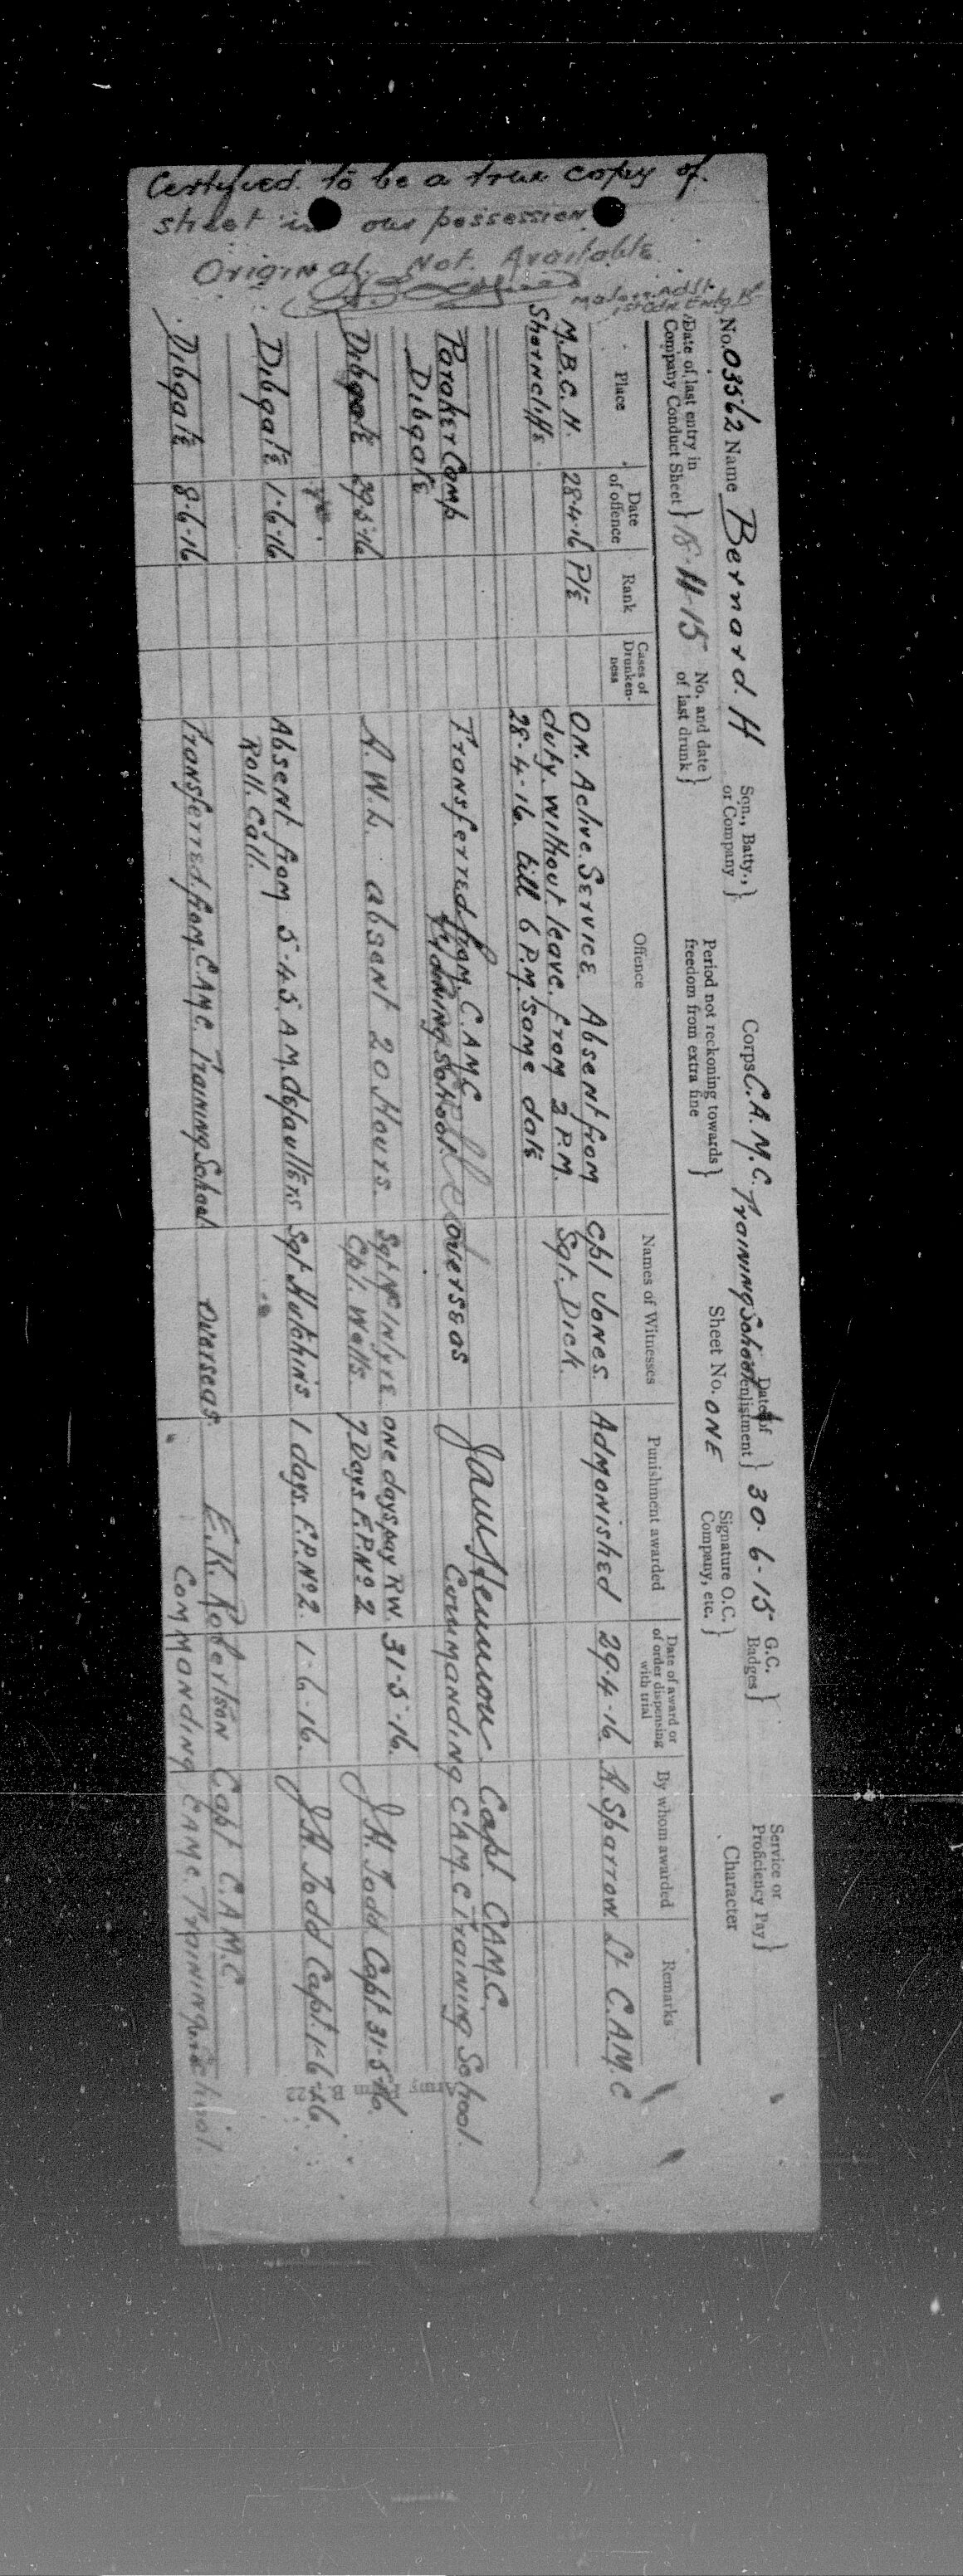 Certified. to be a true copy of.
sheet in our possession.
Original. Not. Available.
No. 03562 Name Bernard. H Sqn., Batty., or Company} Corps C.A.M.C. Training School Date of enlistment} 30-6-15 G.C. Badges} Service or Proficiency Pay}
Date of last entry in Company Conduct Sheet} 15-11-15 No. and date of last drunk} Period not reckoning towards freedom from extra fine} Sheet No. ONE Signature O.C. Company, etc.} Character
Place Date of offence Rank Cases of Drunkenness Offence Names of Witnesses Punishment awarded Date of award or of order dispensing with trial By whom awarded Remarks
M.B.C.H. 28-4-16 Pte ON. Active. Service Absent from Cpl Jones. Admonished 29-4-16 A. Sparrow Lt. C.A.M.C
Shorncliffe. duty. without leave. from 2 P.M. Sgt. Dick
28-4-16. till 6 P.M. Same date
Transferred from. C.AMC overseas Capt CAMC.
Dibgate Training School. Commanding C.A.M.C Training School.
Dibgate 29.5.16 A.W.L absent 20 Hours. one days pay RW. 31-5-16. J.H. Todd Capt 31-5-16.
Cpl. Wells. 7 Days F.P. No 2
Dibgate 1-6-16 Absent from 5-45 AM. defaulters Sgt Hutchins 1 days. F.P. No 2. 1-6-16. J.H. Todd Capt. 1-6-16.
Roll. Call.
Dibgate 8-6-16 Transferred. from. C.AMC. Training School Overseas. E.K. Robertson Capt C.A.M.C
Commanding CAMC. Training School.
Army Form B. 122